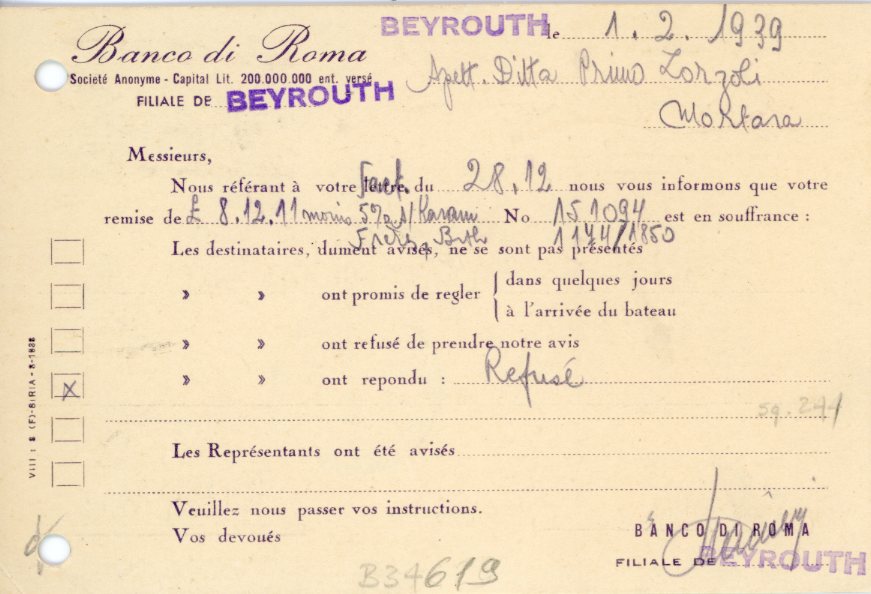 BEYROUTH le 1.2.1939
Banco di Roma
Societé Anonyme - Capital Lit. 200.000.000 ent. versé
FILIALE DE BEYROUTH
Spett. Ditta Primo Zorzoli
Mortara
Messieurs,
Nous référant à votre lettre du 28.12 nous vous informons que votre
remise de £ 8.12.11 moins 5% s/ Karam No 151094 est en souffrance :
Frères, Bth 1174/1850
Les destinataires, dument avisés, ne se sont pas présentés
» » ont promis de regler dans quelques jours
à l'arrivée du bateau
» » ont refusé de prendre notre avis
X » » ont repondu : Refusé
sq. 244
Les Représentants ont été avisés
Veuillez nous passer vos instructions.
Vos devoués
BANCO DI ROMA
FILIALE DE BEYROUTH
B34619